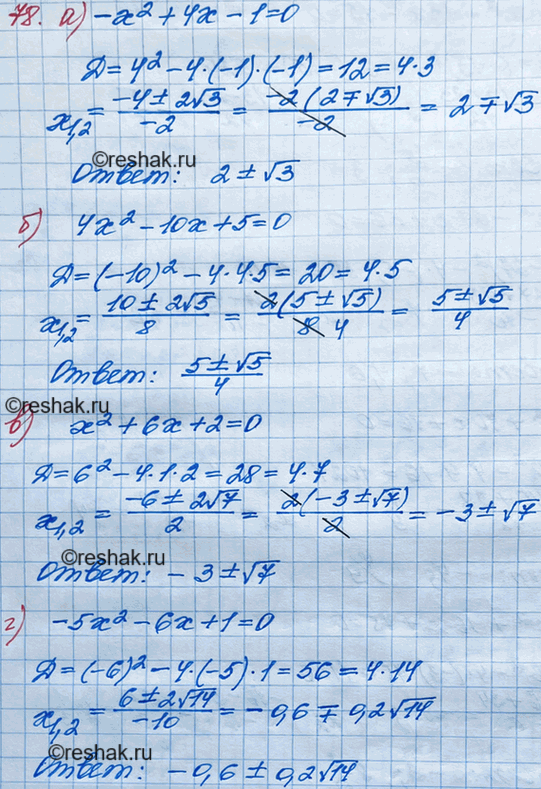 78. а) -x² + 4x - 1 = 0
Д = 4² - 4·(-1)·(-1) = 12 = 4·3
x₁,₂ = (-4 ± 2√3)/(-2) = (-2(2 ∓ √3))/(-2) = 2 ∓ √3
©reshak.ru
Ответ: 2 ± √3
б) 4x² - 10x + 5 = 0
Д = (-10)² - 4·4·5 = 20 = 4·5
x₁,₂ = (10 ± 2√5)/8 = (2(5 ± √5))/(8 4) = (5 ± √5)/4
Ответ: (5 ± √5)/4
©reshak.ru
в) x² + 6x + 2 = 0
Д = 6² - 4·1·2 = 28 = 4·7
x₁,₂ = (-6 ± 2√7)/2 = (2(-3 ± √7))/2 = -3 ± √7
©reshak.ru
Ответ: -3 ± √7
г) -5x² - 6x + 1 = 0
Д = (-6)² - 4·(-5)·1 = 56 = 4·14
x₁,₂ = (6 ± 2√14)/(-10) = -0,6 ∓ 0,2√14
©reshak.ru
Ответ: -0,6 ± 0,2√14